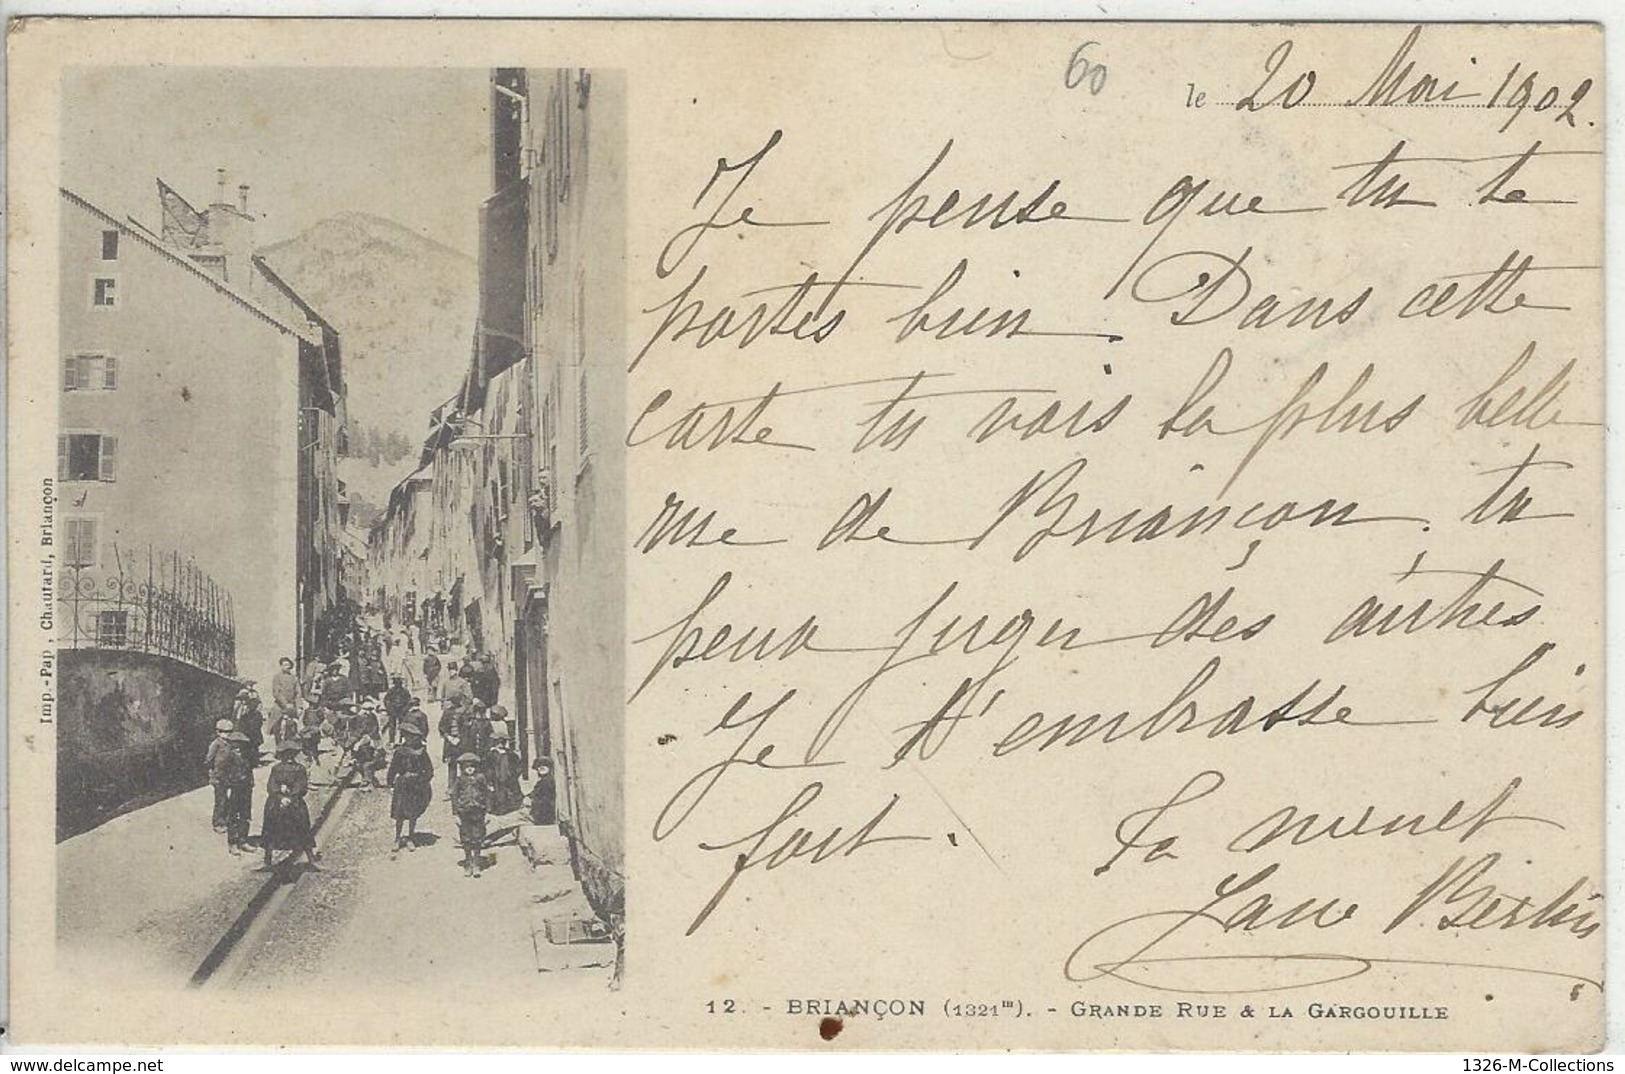 60
le 20 Mai 1902.
Je pense que tu te
portes bien. Dans cette
carte tu vois la plus belle
rue de Briançon. tu
peux juger des autres
Je t'embrasse bien
fort.
Ta
Bertin
Imp.-Pap, Chautard, Briançon
12. - BRIANÇON (1321m). - GRANDE RUE & LA GARGOUILLE
1326-M-Collections